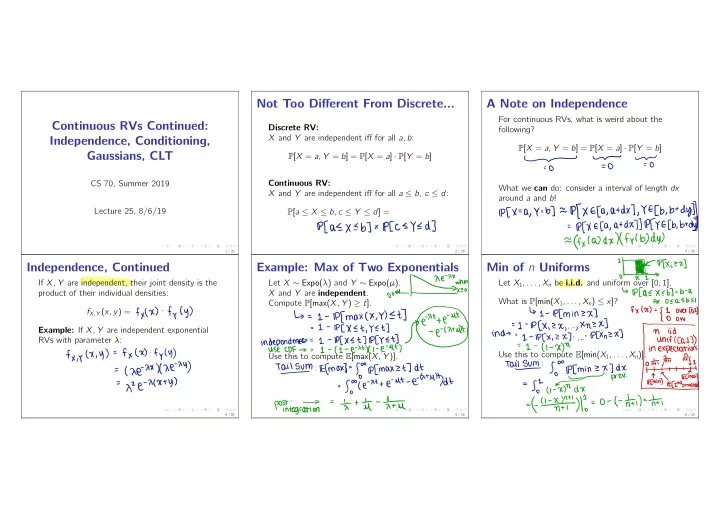 Continuous RVs Continued:
Independence, Conditioning,
Gaussians, CLT
CS 70, Summer 2019
Lecture 25, 8/6/19
1 / 26
Not Too Different From Discrete...
Discrete RV:
X and Y are independent iff for all a, b:
P[X = a, Y = b] = P[X = a] · P[Y = b]
Continuous RV:
X and Y are independent iff for all a ≤ b, c ≤ d:
P[a ≤ X ≤ b, c ≤ Y ≤ d] =
P[a ≤ X ≤ b] × P[c ≤ Y ≤ d]
2 / 26
A Note on Independence
For continuous RVs, what is weird about the
following?
P[X = a, Y = b] = P[X = a] · P[Y = b]
=0 =0 =0
What we can do: consider a interval of length dx
around a and b!
P[X=a, Y=b] ≈ P[X∈[a, a+dx], Y∈[b, b+dy]]
= P[X∈[a, a+dx]] P[Y∈[b, b+dy]]
≈ (fX(a) dx)(fY(b) dy)
3 / 26
Independence, Continued
If X, Y are independent, their joint density is the
product of their individual densities:
fX,Y(x, y) = fX(x) · fY(y)
Example: If X, Y are independent exponential
RVs with parameter λ:
fX,Y(x,y) = fX(x) · fY(y)
= (λe^-λx)(λe^-λy)
= λ² e^-λ(x+y)
4 / 26
Example: Max of Two Exponentials
λe^-λx
when x≥0
Let X ∼ Expo(λ) and Y ∼ Expo(μ).
X and Y are independent.
Compute P[max(X, Y) ≥ t].
↳ = 1 - P[max(X,Y) ≤ t]
= 1 - P[X≤t, Y≤t]
independence → = 1 - P[X≤t] P[Y≤t]
use CDF → = 1 - (1-e^-λt)(1-e^-μt)
e^-λt + e^-μt
- e^-(λ+μ)t
Use this to compute E[max(X, Y)].
Tail Sum: E[max] = ∫₀^∞ P[max ≥ t] dt
= ∫₀^∞ (e^-λt + e^-μt - e^-(λ+μ)t) dt
post integration → = 1/λ + 1/μ - 1/(λ+μ)
5 / 26
Min of n Uniforms
P[X1 ≥ x]
Let X1, . . . , Xn be i.i.d. and uniform over [0, 1].
↳ P[a ≤ X ≤ b] = b-a
for 0≤a≤b≤1
What is P[min(X1, . . . , Xn) ≤ x]?
fX(x) = {1 over [0,1]
0 ow
↳ 1 - P[min ≥ x]
= 1 - P[X1 ≥ x, ..., Xn ≥ x]
ind → = 1 - P[X1 ≥ x] · ... · P[Xn ≥ x]
= 1 - (1-x)^n
n iid
unif([0,1])
in expectation
Use this to compute E[min(X1, . . . , Xn)].
Tail Sum: ∫₀^∞ P[min ≥ x] dx
prev.
= ∫₀^1 (1-x)^n dx
= (-(1-x)^(n+1)/(n+1))|₀^1 = 0 - (-1/(n+1)) = 1/(n+1)
E[min]
E[max]
6 / 26